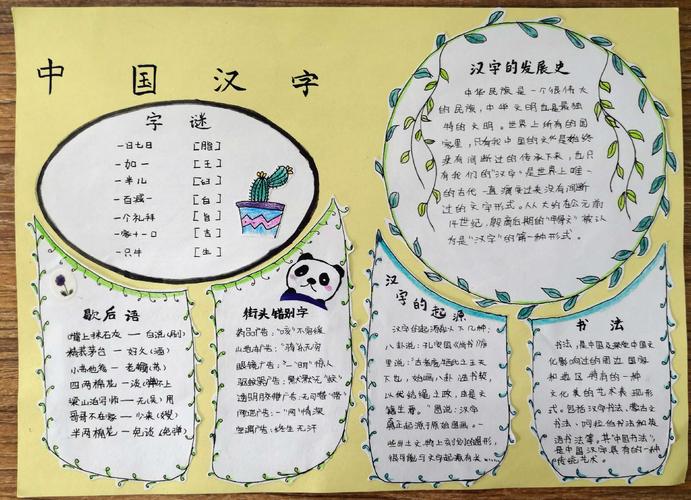 中国汉字
字谜
一日七日 [脂]
一加一 [王]
一半儿 [臼]
一百减一 [白]
一个礼拜 [旨]
一家十一口 [吉]
一只牛 [生]
汉字的发展史
中华民族是一个很伟大
的民族，中华文明也是最独
特的文明。世界上所有的国
家里，只有我中国的文化是始终
没有间断过的传承下来，也只
有我们的“汉字”是世界上唯一
的古代一直演变过来没有间断
过的文字形式。从大约在公元前
14世纪，殷商后期的“甲骨文”被认
为是“汉字”的第一种形式。
歇后语
墙上抹石灰——白说(刷)
四两棉花——谈(弹)不上
梁山泊军师——无(吴)用
哥哥不在家——少来(嫂)
半两棉花——免谈(免弹)
街头错别字
药品广告：“咳”不容缓
山地车广告：“骑”乐无穷
眼镜广告：一“明”惊人
驱蚊器广告：默默无“蚊”
透明胶带广告：无可“带”
网吧广告：一“网”情深
空调广告：终生无汗
汉字的起源
汉字的起源有以下几种：
八卦说：孔安国《尚书》序
里说：“古者庖牺氏之王天
下也，始画八卦，造书契，
以代结绳之政，由是文
籍生焉。”图说：汉字
真正起源于原始图画。一
些出土文物上刻划的图形，
很可能与文字起源有关
书法
书法，是中国及深受中国文
化影响过的周边国家
和地区特有的一种
文化美的艺术表现形
式。包括汉字书法、蒙古文
书法、阿拉伯书法和英
语书法等。其“中国书法”，
是中国汉字具有的一种
传统艺术。